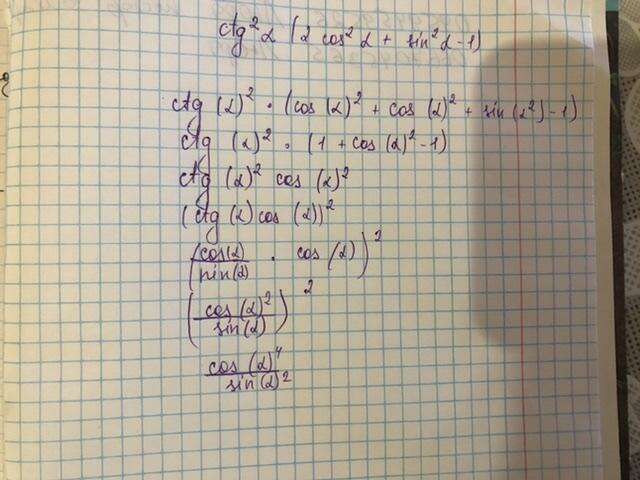 ctg²α (2 cos²α + sin²α-1)
ctg (α)² · (cos (α)² + cos (α)² + sin (α²) - 1)
ctg (α)² · (1 + cos (α)² - 1)
ctg (α)² cos (α)²
(ctg (α) cos (α))²
(cos(α)/sin(α) · cos (α))²
(cos (α)²/sin(α))²
cos (α)⁴/sin(α)²